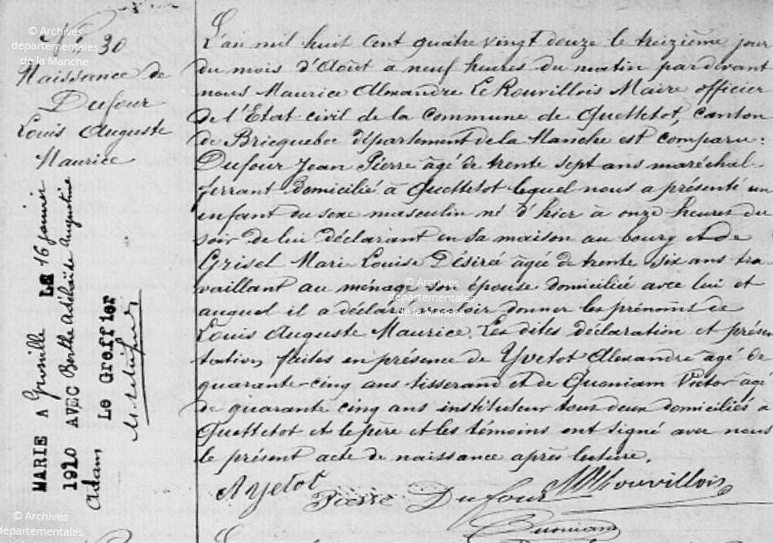 N° 30
Naissance de
Dufour
Louis Auguste
Maurice
L'an mil huit cent quatre vingt douze le treizième jour
du mois d'Août à neuf heures du matin par devant
nous Maurice Alexandre Le Rouvillois Maire officier
de l'Etat civil de la commune de Quettetot, canton
de Bricquebec département de la Manche est comparu :
Dufour Jean Pierre âgé de trente sept ans maréchal-
ferrant domicilié à Quettetot lequel nous a présenté un
enfant du sexe masculin né d'hier à onze heures du
soir de lui déclarant en sa maison au bourg et de
Grisel Marie Louise Désirée âgée de trente six ans tra-
vaillant au ménage son épouse domiciliée avec lui et
auquel il a déclaré vouloir donner les prénoms de
Louis Auguste Maurice. Les dites déclaration et présen-
tation faites en présence de Yvetot Alexandre âgé de
quarante-cinq ans tisserand et de Quoniam Victor âgé
de quarante cinq ans instituteur tous deux domiciliés à
Quettetot et le père et les témoins ont signé avec nous
le présent acte de naissance après lecture.
A Yvetot
Pierre Dufour
Rouvillois
Quoniam
MARIE A LE 16 janvier
1920 AVEC Berthe Adélaïde Augustine
Adam Le Greffier
© Archives
départementales
de la Manche
© Archives
départementales
de la Manche
© Archives
départementales